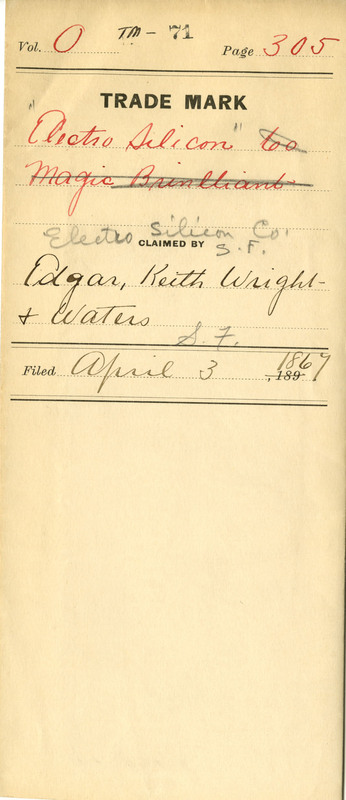 Vol. O TM-71 Page 305
TRADE MARK
"Electro Silicon" Co
Magic Brinlliant
Electro Silicon Co.
CLAIMED BY S.F.
Edgar, Keith Wright
& Waters
S.F.
Filed April 3, 189 1867